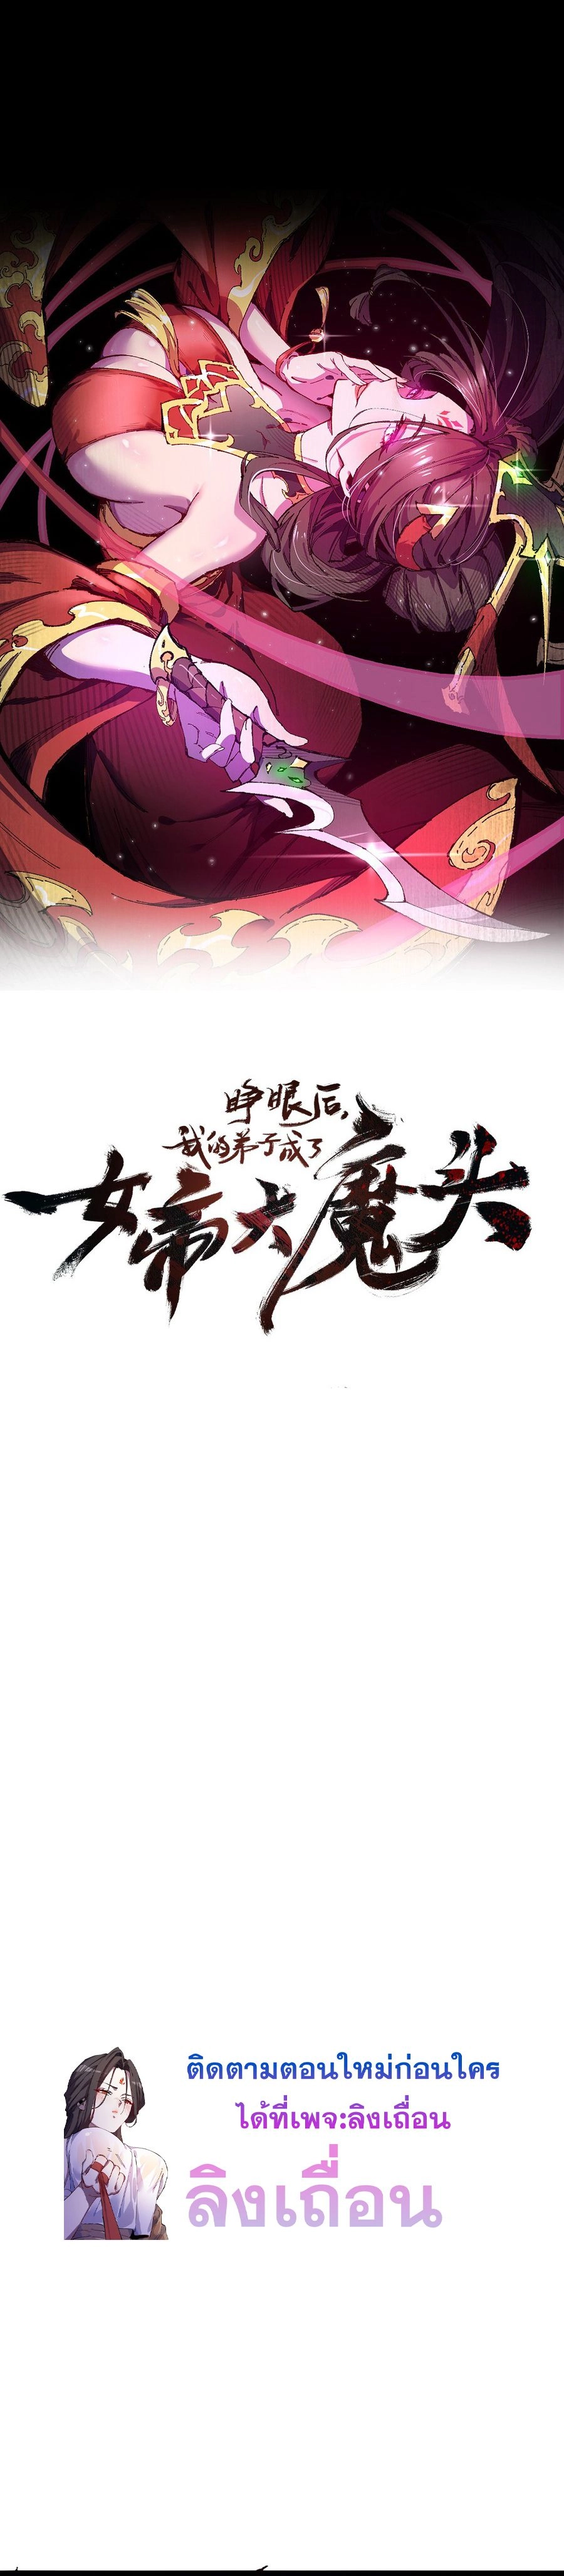 睁眼后,
我的弟子成了
女帝大魔头
ติดตามตอนใหม่ก่อนใคร
ได้ที่เพจ:ลิงเถื่อน
ลิงเถื่อน